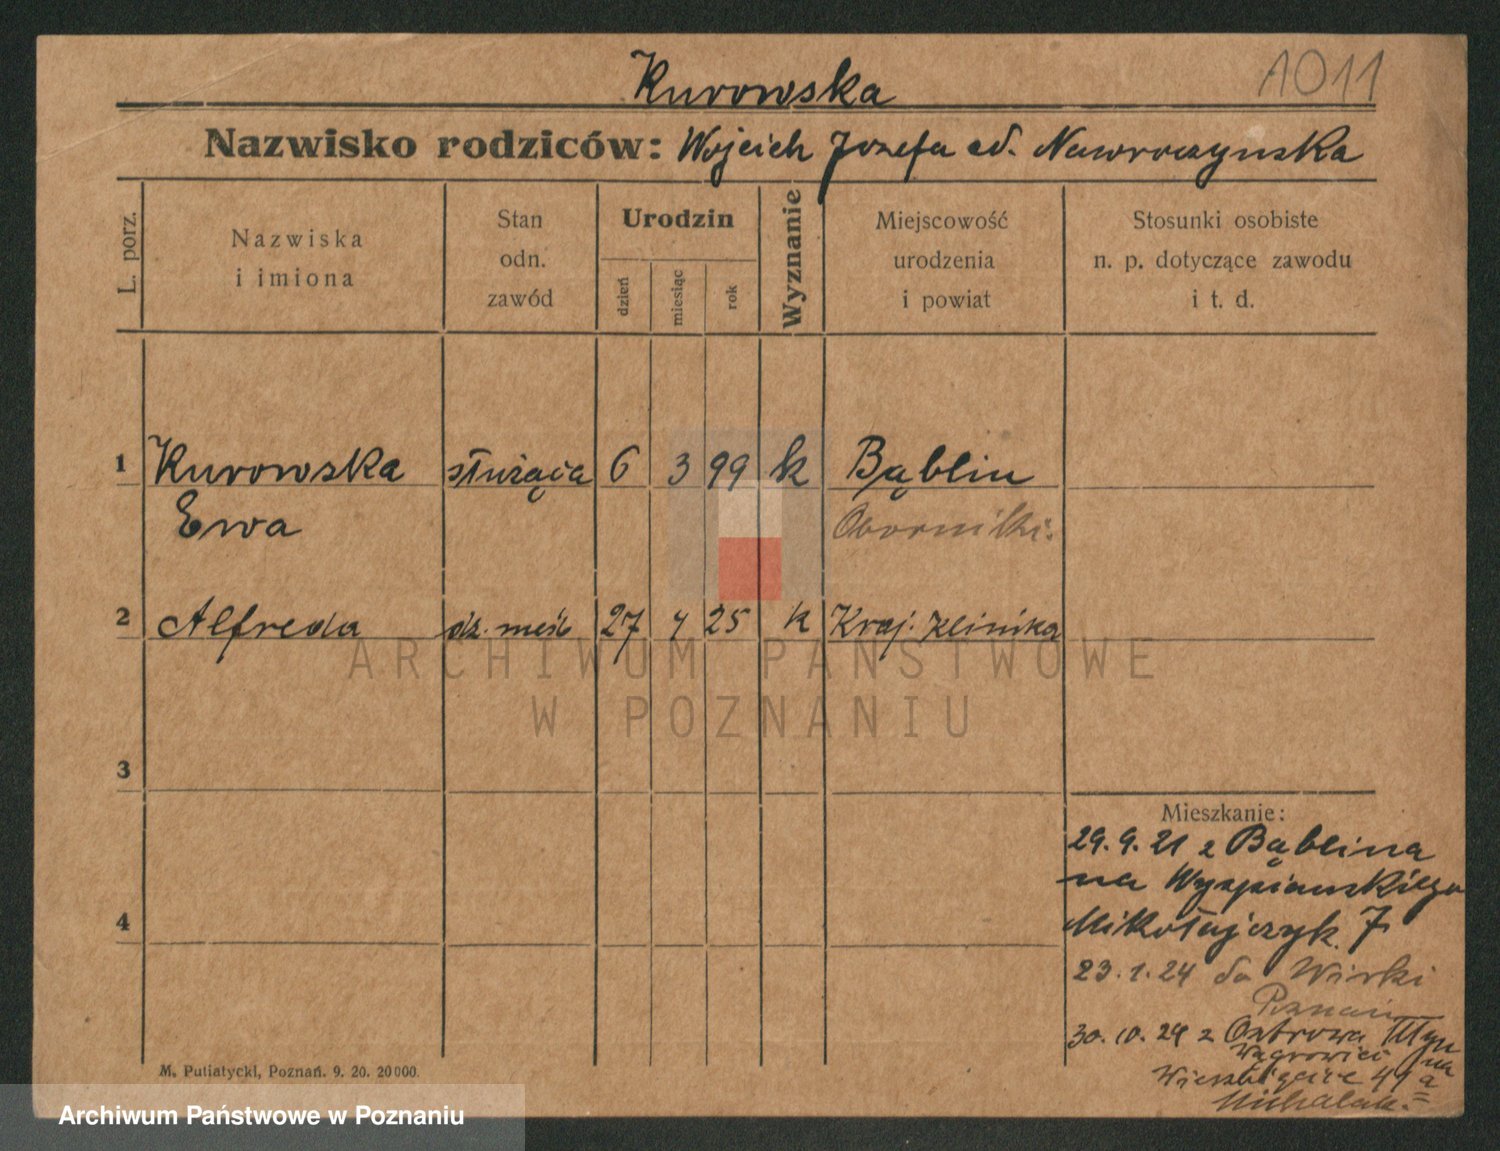 Kurowska
1011
Nazwisko rodziców: Wojciech Józefa od. Nawroczynska
L. porz.
Nazwiska
i imiona
Stan
odn.
zawód
Urodzin
dzień
miesiąc
rok
Wyznanie
Miejscowość
urodzenia
i powiat
Stosunki osobiste
n. p. dotyczące zawodu
i t. d.
1 Kurowska służąca 6 3 99 k Bąblin
Ewa Oborniki.
2 Alfreda 27 4 25 k Kraj. klinika
3
4
Mieszkanie:
29. 9. 21 z Bąblina
na Wyspiańskiego
Mikołajczyk 7
23. 1. 24 do Wirki
Poznań
30. 10. 24 z Ostrowa Młyn
Wągrowiec na
Wierzbięcice 41 a
Michalak.
M. Putiatycki, Poznań. 9. 20. 20000.
ARCHIWUM PAŃSTWOWE
W POZNANIU
Archiwum Państwowe w Poznaniu